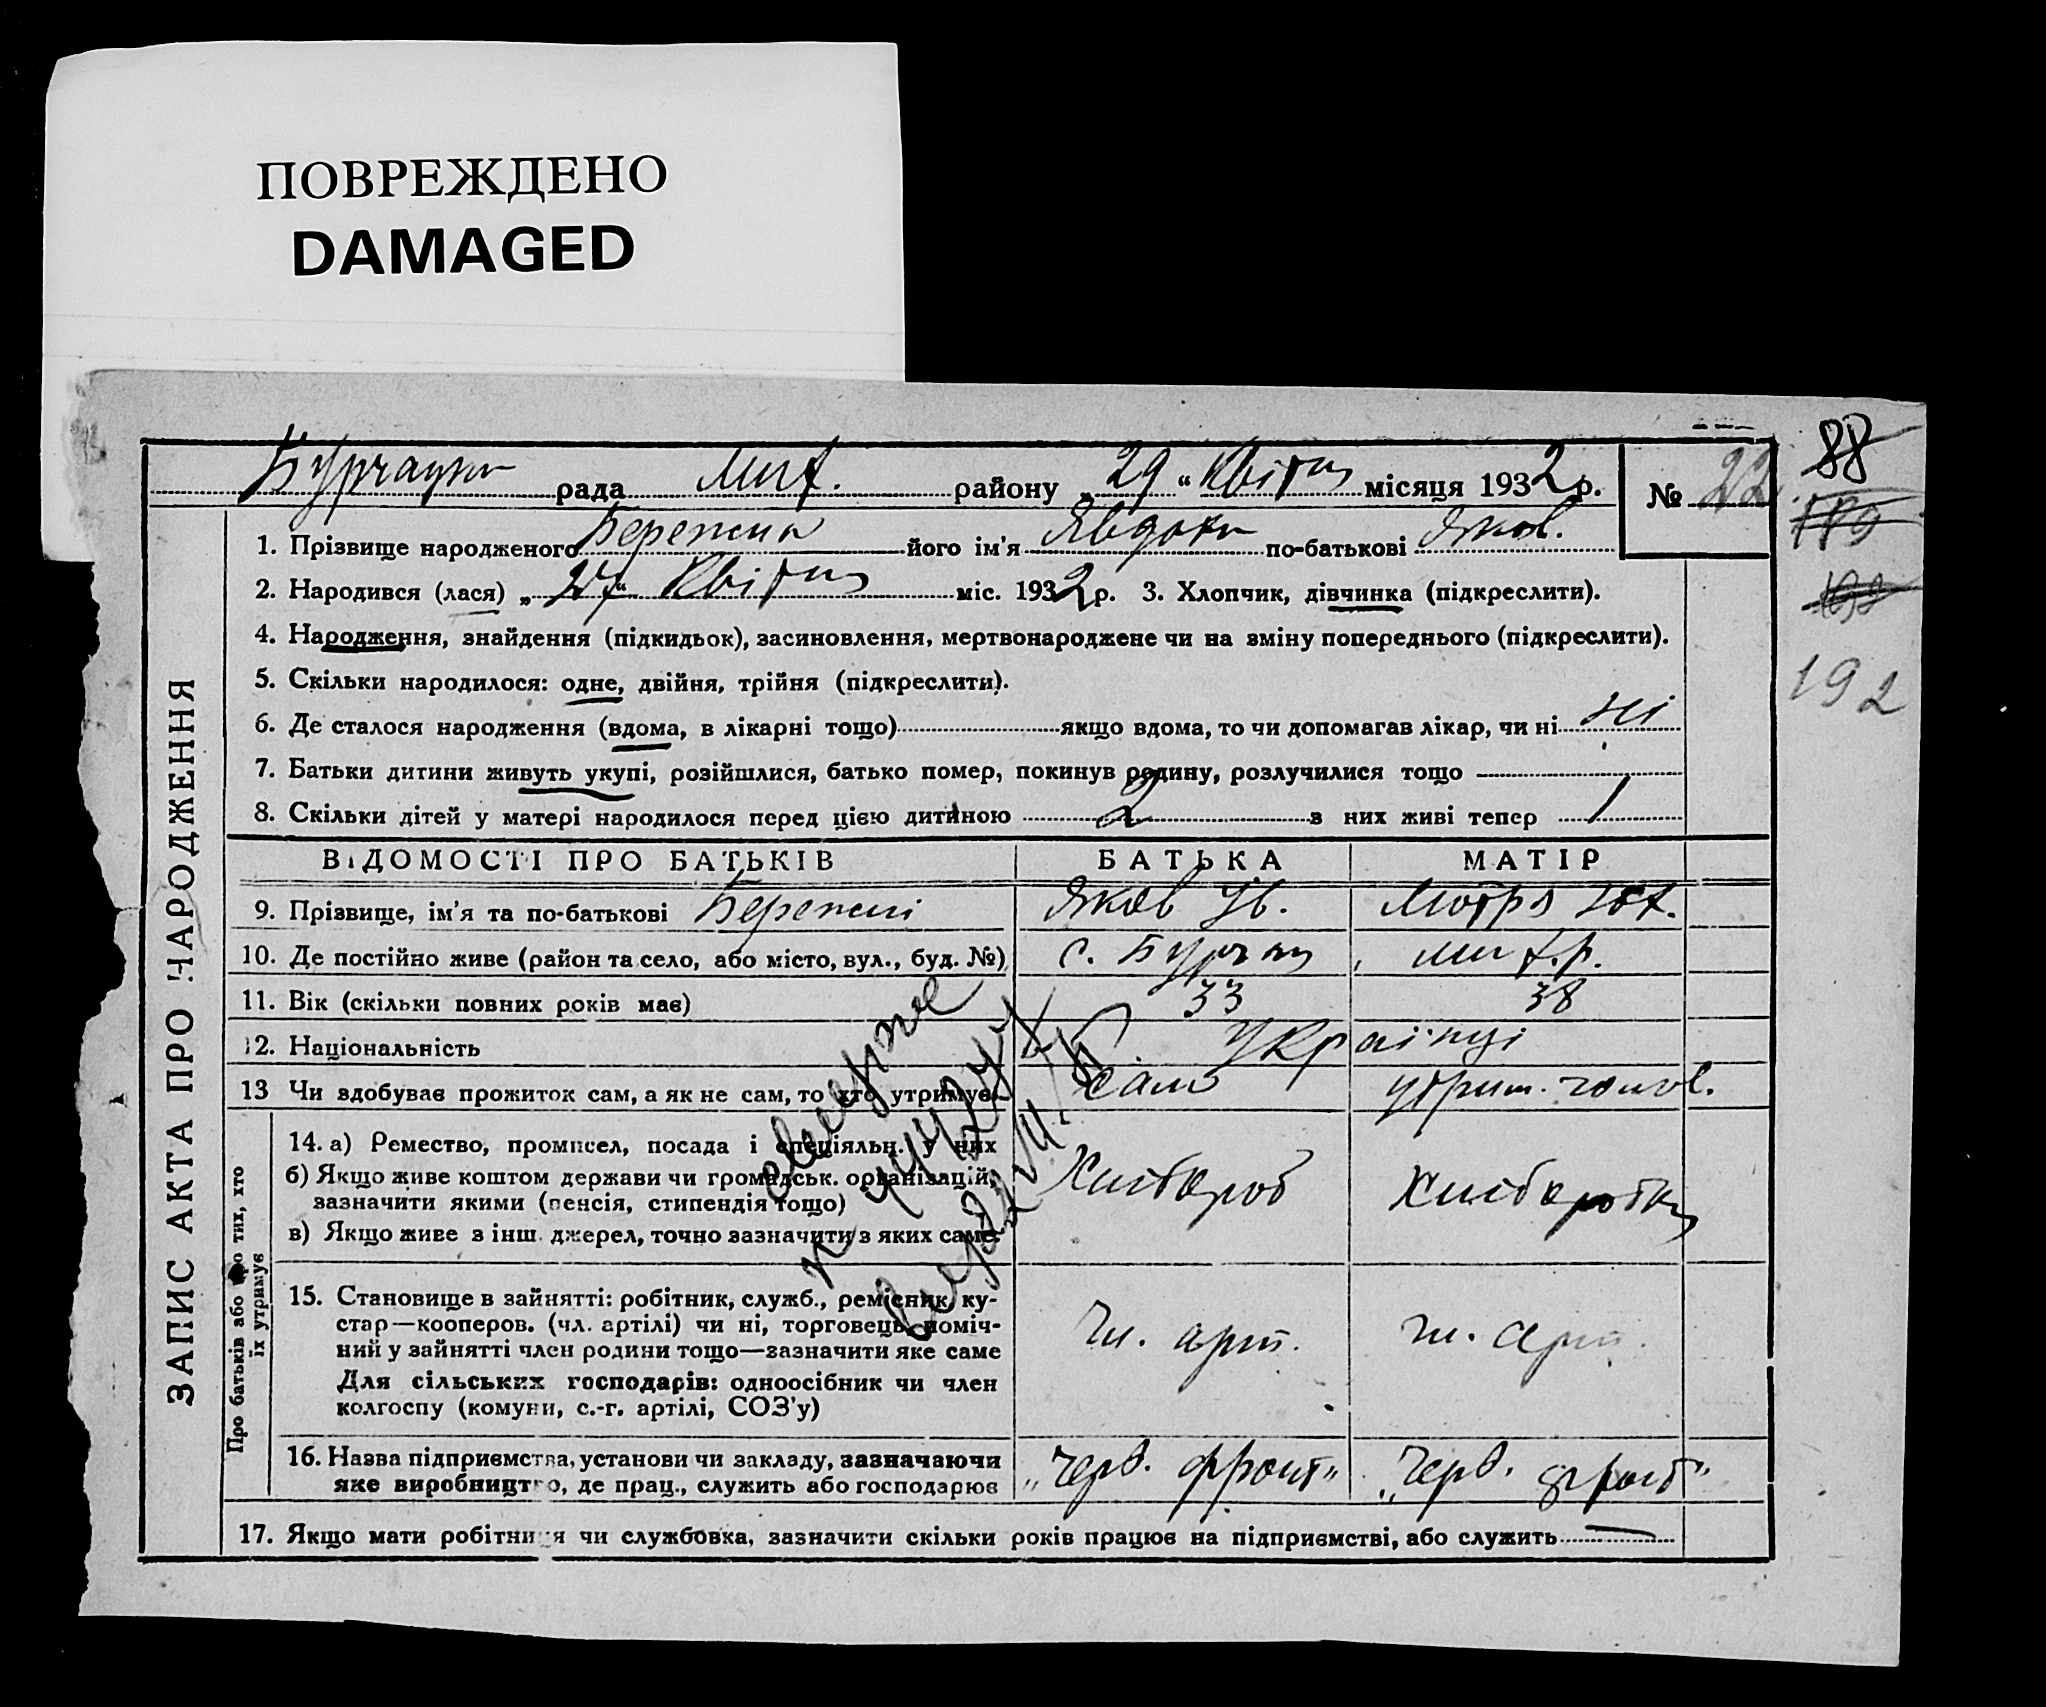 ПОВРЕЖДЕНО
DAMAGED
рада Мих. району „29“ Квітня місяця 1932 р. № 22
88
192
1. Прізвище народженого Бережна його ім'я Явдоха по-батькові Яков.
2. Народився (лася) „27“ Квітня міс. 1932 р. 3. Хлопчик, дівчинка (підкреслити).
4. Народження, знайдення (підкидьок), засиновлення, мертвонароджене чи на зміну попереднього (підкреслити).
5. Скільки народилося: одне, двійня, трійня (підкреслити).
6. Де сталося народження (вдома, в лікарні тощо) якщо вдома, то чи допомагав лікар, чи ні ні
7. Батьки дитини живуть укупі, розійшлися, батько помер, покинув родину, розлучилися тощо
8. Скільки дітей у матері народилося перед цією дитиною 2 з них живі тепер 1
ЗАПИС АКТА ПРО НАРОДЖЕННЯ
ВІДОМОСТІ ПРО БАТЬКІВ БАТЬКА МАТІР
9. Прізвище, ім'я та по-батькові Бережні Яков Ів. Мотря
10. Де постійно живе (район та село, або місто, вул., буд. №) с. Бурчак, Мих. р.
11. Вік (скільки повних років має) 33 38
12. Національність Українці
13 Чи здобуває прожиток сам, а як не сам, то хто утримує сам утрим. чолов.
Про батьків або про тих, хто їх утримує
14. а) Ремество, промисел, посада і спеціяльн. у них
б) Якщо живе коштом держави чи громадськ. організацій,
зазначити якими (пенсія, стипендія тощо) Хлібороб Хліборобка
в) Якщо живе з інш. джерел, точно зазначити з яких саме
15. Становище в зайнятті: робітник, служб., ремісник, ку-
стар—кооперов. (чл. артілі) чи ні, торговець, поміч-
ний у зайнятті член родини тощо—зазначити яке саме чл. арт. чл. арт.
Для сільських господарів: одноосібник чи член
колгоспу (комуни, с.-г. артілі, СОЗ'у)
16. Назва підприємства, установи чи закладу, зазначаючи „Черв. фронт“ „Черв. фронт“
яке виробництво, де прац., служить або господарює
17. Якщо мати робітниця чи службовка, зазначити скільки років працює на підприємстві, або служить —